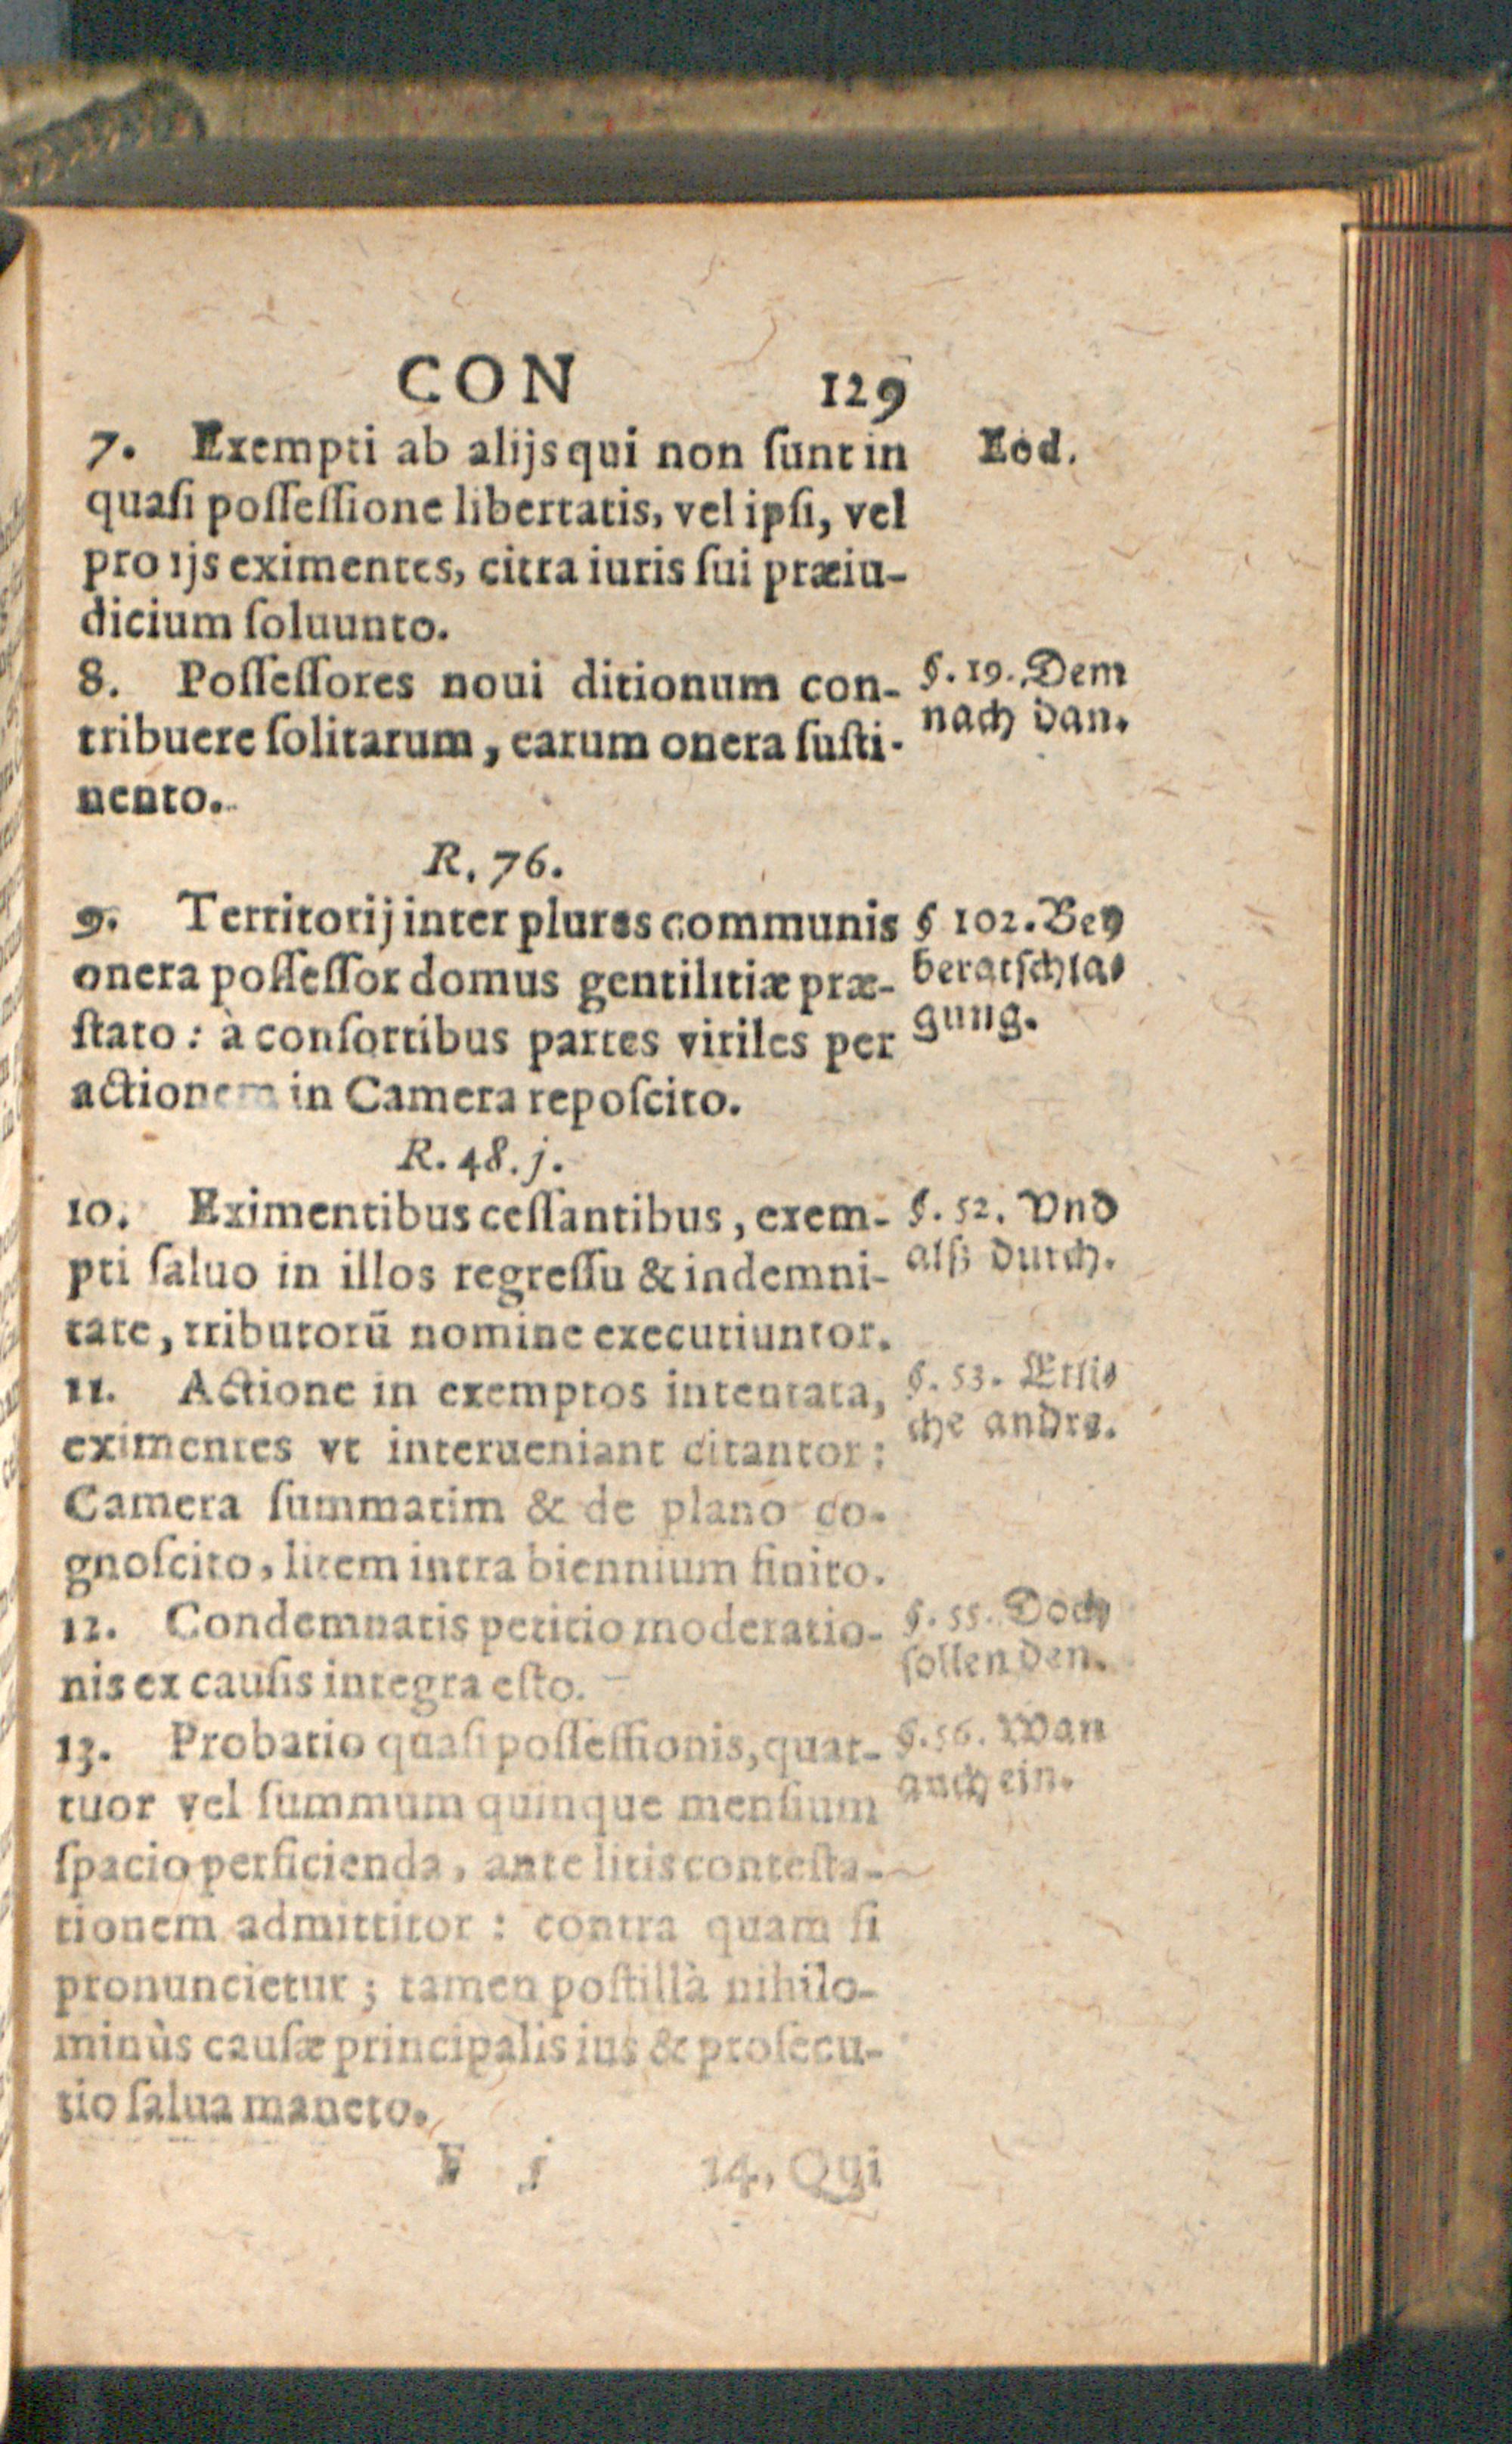 CON 129
7. Exempti ab alijs qui non ſunt in
quaſi poſſeſſione libertatis, vel ipſi, vel
pro ijs eximentes, citra iuris ſui præiu-
dicium ſoluunto.
Eod.
8. Poſſeſſores noui ditionum con-
tribuere ſolitarum, earum onera ſuſti-
nento.
§. 19. Dem
nach dan.
R. 76.
9. Territorij inter plures communis
onera poſſeſſor domus gentilitiæ præ-
ſtato: à conſortibus partes viriles per
actionem in Camera repoſcito.
§ 102. Bey
beratſchla-
gung.
R. 48. j.
10. Eximentibus ceſſantibus, exem-
pti ſaluo in illos regreſſu & indemni-
tate, tributorū nomine executiuntor.
§. 52. Vnd
alſz durch.
11. Actione in exemptos intentata,
eximentes vt interueniant citantor:
Camera ſummatim & de plano co-
gnoſcito, litem intra biennium finito.
§. 53. Etli-
che andre.
12. Condemnatis petitio moderatio-
nis ex cauſis integra eſto.
§. 55. Doch
ſollen den.
13. Probatio quaſi poſſeſſionis, quat-
tuor vel ſummum quinque menſium
ſpacio perficienda, ante litis conteſta-
tionem admittitor: contra quam ſi
pronuncietur; tamen poſtillà nihilo-
minùs cauſæ principalis ius & proſecu-
tio ſalua maneto.
§. 56. Wan
auch ein.
F j 14. Qui